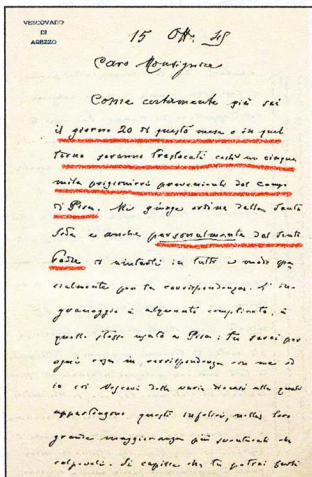 VESCOVADO
DI
AREZZO
15 Ott. 45
Caro Monsignore
Come certamente già sai
il giorno 20 di questo mese o in quel
torno saranno traslocati costì un cinque
mila prigionieri provenienti dal campo
di Pisa. Mi giunge ordine dalla Santa
Sede e anche personalmente dal Santo
Padre di aiutarli in tutti i modi spe
cialmente per la corrispondenza. L'in
granaggio è alquanto complicato, è
quello stesso usato a Pisa: tu sarai per
ogni cosa in corrispondenza con me ed
io coi Vescovi delle varie diocesi alle quali
appartengono questi infelici, nella loro
grande maggioranza più sventurati che
colpevoli. Si capisce che tu potrai farti